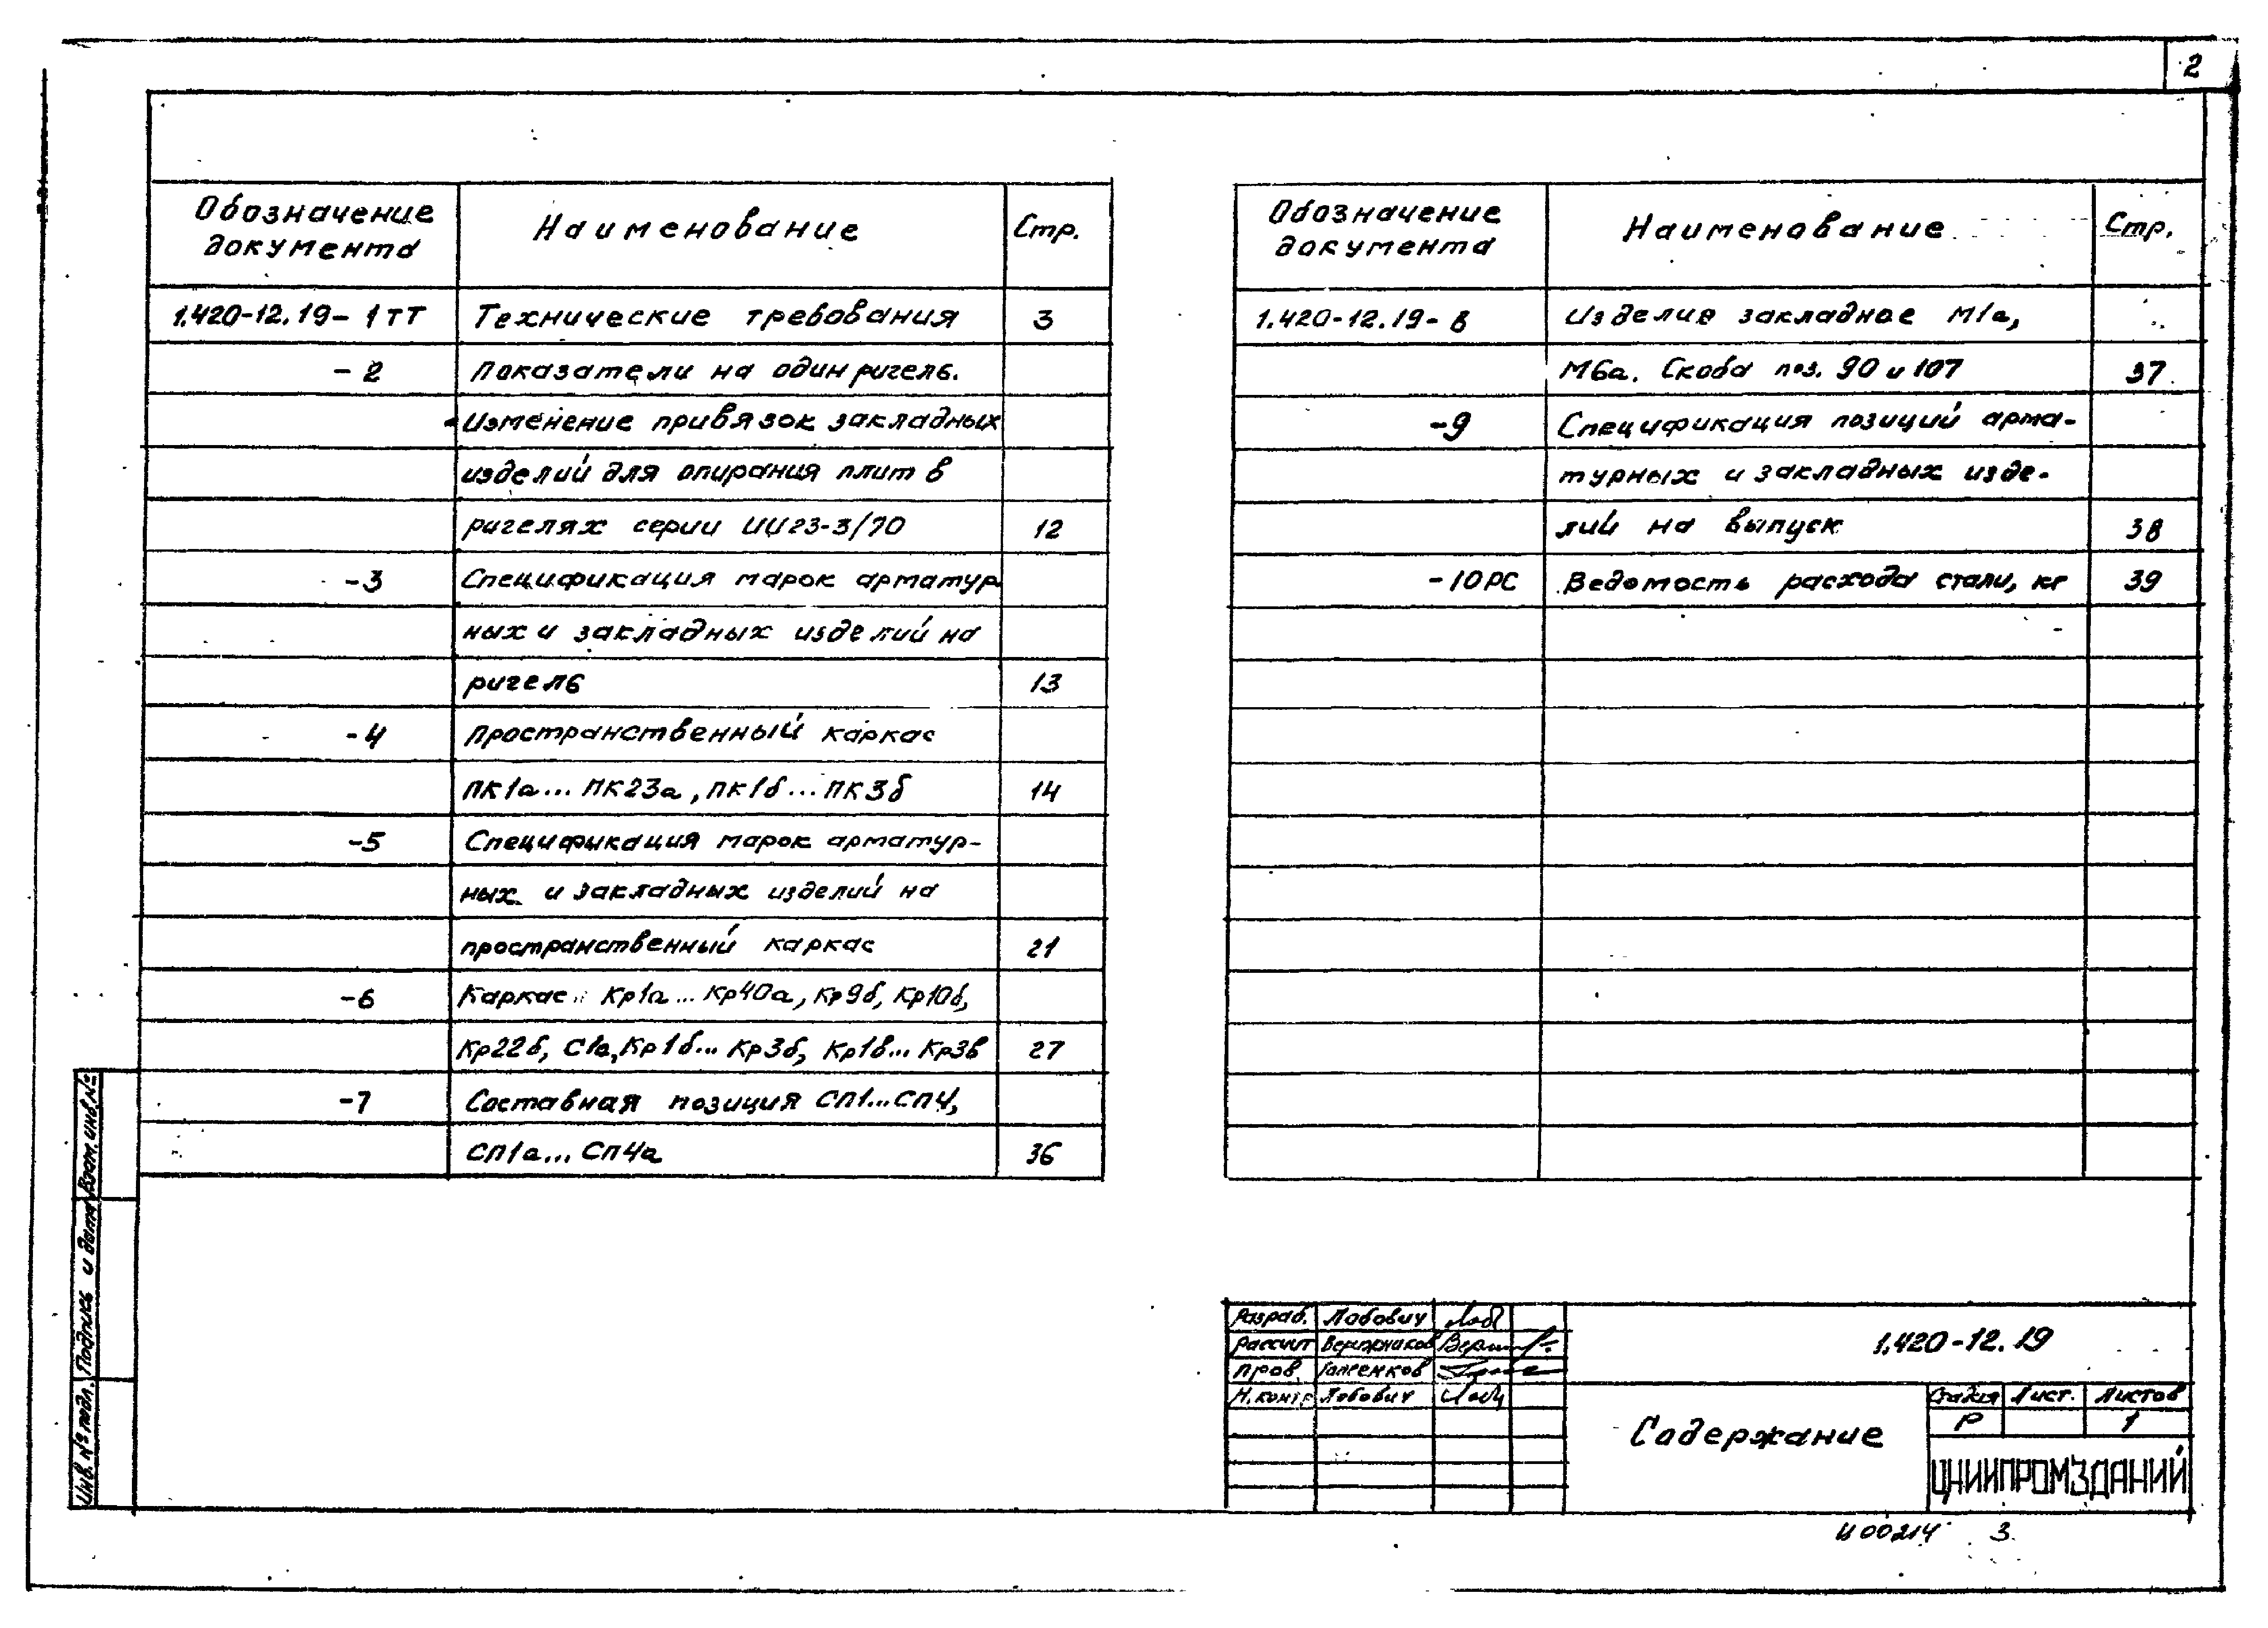 2
Обозначение документа Наименование Стр.
1.420-12.19-1ТТ Технические требования 3
-2 Показатели на один ригель.
Изменение привязок закладных
изделий для опирания плит в
ригелях серии ИИ23-3/70 12
-3 Спецификация марок арматур
ных и закладных изделий на
ригель 13
-4 Пространственный каркас
ПК1а...ПК23а, ПК1б...ПК3б 14
-5 Спецификация марок арматур-
ных и закладных изделий на
пространственный каркас 21
-6 Каркас Кр1а...Кр40а, Кр9б, Кр10б,
Кр22б, С1а, Кр1б...Кр3б, Кр1в...Кр3в 27
-7 Составная позиция СП1...СП4,
СП1а...СП4а 36
Обозначение документа Наименование Стр.
1.420-12.19-8 Изделие закладное М1а,
М6а. Скоба поз. 90 и 107 37
-9 Спецификация позиций арма-
турных и закладных изде-
лий на выпуск 38
-10РС Ведомость расхода стали, кг 39
Инв. № подл. Подпись и дата Взам. инв. №
Разраб. Лобович
Рассчит
Пров.
Н.контр Лобович
1.420-12.19
Содержание
Стадия Лист. Листов
Р 1
ЦНИИПРОМЗДАНИЙ
И00214 3